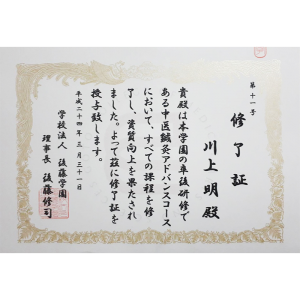 第十一号
修了証
川上明殿
貴殿は本学園の卒後研修で
ある中医鍼灸アドバンスコース
において、すべての課程を修
了し、資質向上を果たされ
ました。よって茲に修了証を
授与致します。
平成二十四年三月三十一日
学校法人 後藤学園
理事長 後藤修司